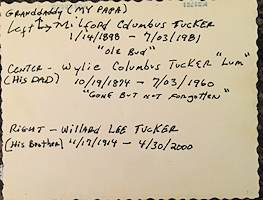 GRANDDADDY (MY PAPA)
Left → Milford Columbus TUCKER
1/14/1898 - 7/03/1981
"Ole Bud"
CENTER - Wylie Columbus TUCKER "Lum"
(His DAD) 10/19/1874 - 7/03/1960
"Gone But Not Forgotten"
RIGHT - Willard LEE TUCKER
(His Brother) 11/17/1914 - 4/30/2000